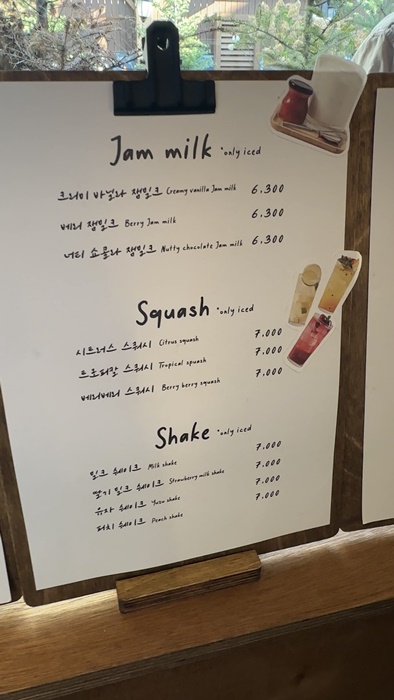 Jam milk *only iced
크리미 바닐라 잼밀크 Creamy vanilla Jam milk 6,300
베리 잼밀크 Berry Jam milk 6,300
너티 쇼콜라 잼밀크 Nutty chocolate Jam milk 6,300
Squash *only iced
시트러스 스쿼시 Citrus squash 7,000
트로피칼 스쿼시 Tropical squash 7,000
베리베리 스쿼시 Berry berry squash 7,000
Shake *only iced
밀크 쉐이크 Milk shake 7,000
딸기 밀크 쉐이크 Strawberry milk shake 7,000
유자 쉐이크 Yuzu shake 7,000
피치 쉐이크 Peach shake 7,000